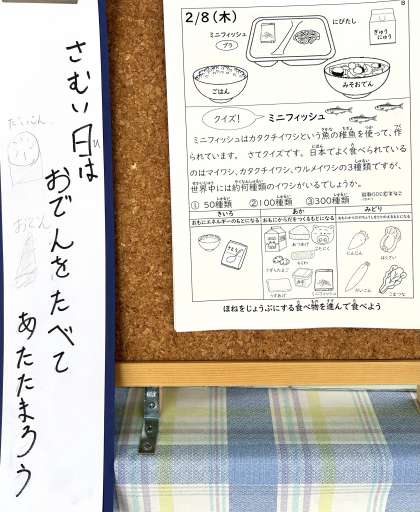 さむい日は
おでんをたべて
あたたまろう
だいこん
おでん
2/8(木)
ミニフィッシュ
プラ
にびたし
ぎゅうにゅう
ごはん
みそおでん
クイズ! ミニフィッシュ
ミニフィッシュはカタクチイワシという魚の稚魚を使って、作
られています。 さてクイズです。日本でよく食べられている
のはマイワシ、カタクチイワシ、ウルメイワシの3種類ですが、
世界中には約何種類のイワシがいるでしょうか。
① 50種類 ②100種類 ③300種類
きいろ あか みどり
おもにエネルギーのもとになる おもにからだをつくるもとになる
ぎゅうにゅう
あつあげ
ぶたにく
うずらたまご
うすあげ
ミニフィッシュ
にんじん
はくさい
だいこん
こまつな
ほねをじょうぶにする食べ物を進んで食べよう